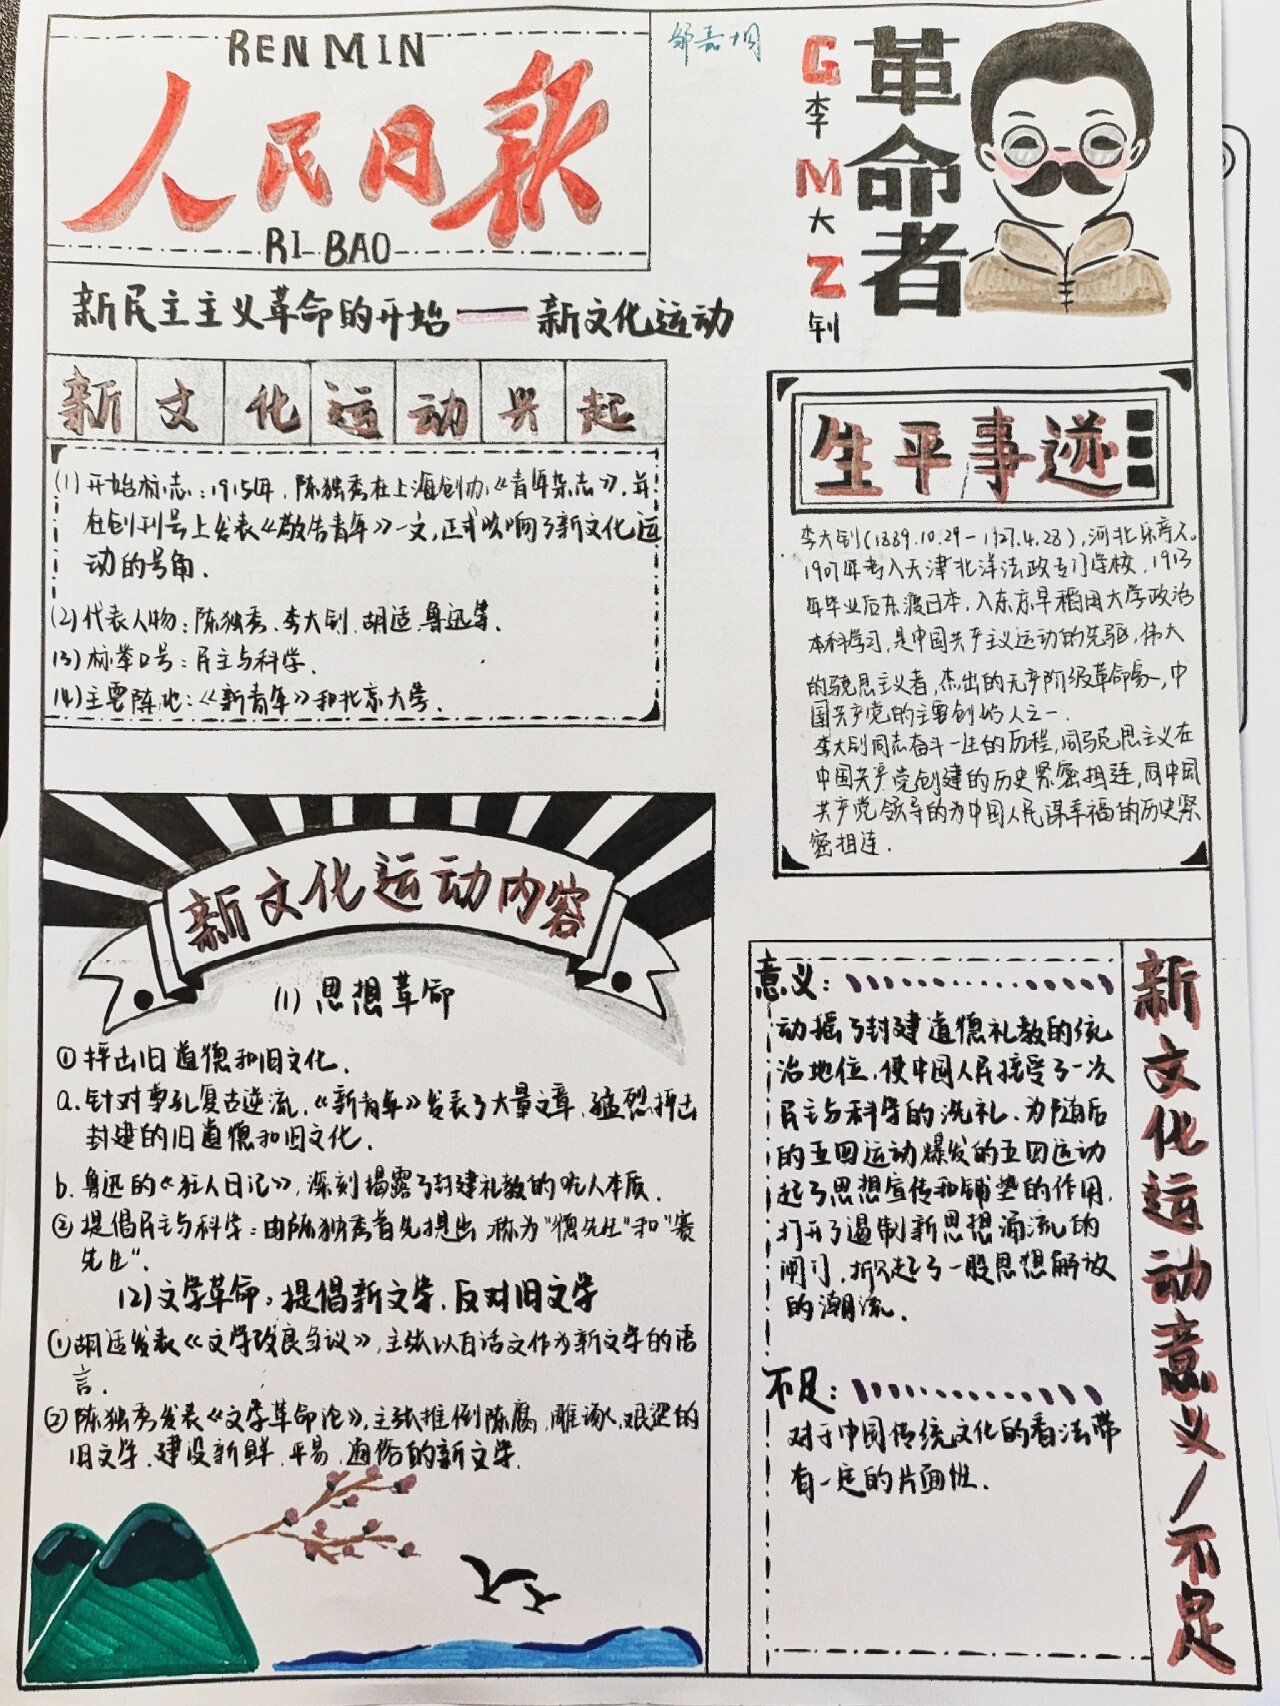 REN MIN
人民日报
RI BAO
新民主主义革命的开始——新文化运动
新文化运动兴起
(1)开始标志:1915年,陈独秀在上海创办《青年杂志》,并
在创刊号上发表《敬告青年》一文,正式吹响了新文化运
动的号角.
(2)代表人物:陈独秀、李大钊、胡适、鲁迅等.
(3)标举口号:民主与科学.
(4)主要阵地:《新青年》和北京大学.
新文化运动内容
(1)思想革命
①抨击旧道德和旧文化.
a.针对尊孔复古逆流,《新青年》发表了大量文章,猛烈抨击
封建的旧道德和旧文化.
b.鲁迅的《狂人日记》,深刻揭露了封建礼教的吃人本质.
②提倡民主与科学:由陈独秀首先提出,称为"德先生"和"赛
先生".
(2)文学革命:提倡新文学,反对旧文学
①胡适发表《文学改良刍议》,主张以白话文作为新文学的语
言.
②陈独秀发表《文学革命论》,主张推倒陈腐、雕琢、艰涩的
旧文学,建设新鲜、平易、通俗的新文学.
邹嘉
G李M大Z钊
革命者
生平事迹
李大钊(1889.10.29-1927.4.28),河北乐亭人.
1907年考入天津北洋法政专门学校,1913
年毕业后东渡日本,入东京早稻田大学政治
本科学习,是中国共产主义运动的先驱,伟大
的马克思主义者,杰出的无产阶级革命家,中
国共产党的主要创始人之一.
李大钊同志奋斗一生的历程,同马克思主义在
中国共产党创建的历史紧密相连,同中国
共产党领导的为中国人民谋幸福的历史紧
密相连.
意义:
动摇了封建道德礼教的统
治地位,使中国人民接受了一次
民主与科学的洗礼,为随后
的五四运动爆发的五四运动
起了思想宣传和铺垫的作用,
打开了遏制新思想涌流的
闸门,掀起了一股思想解放
的潮流.
不足:
对于中国传统文化的看法带
有一定的片面性.
新文化运动意义/不足